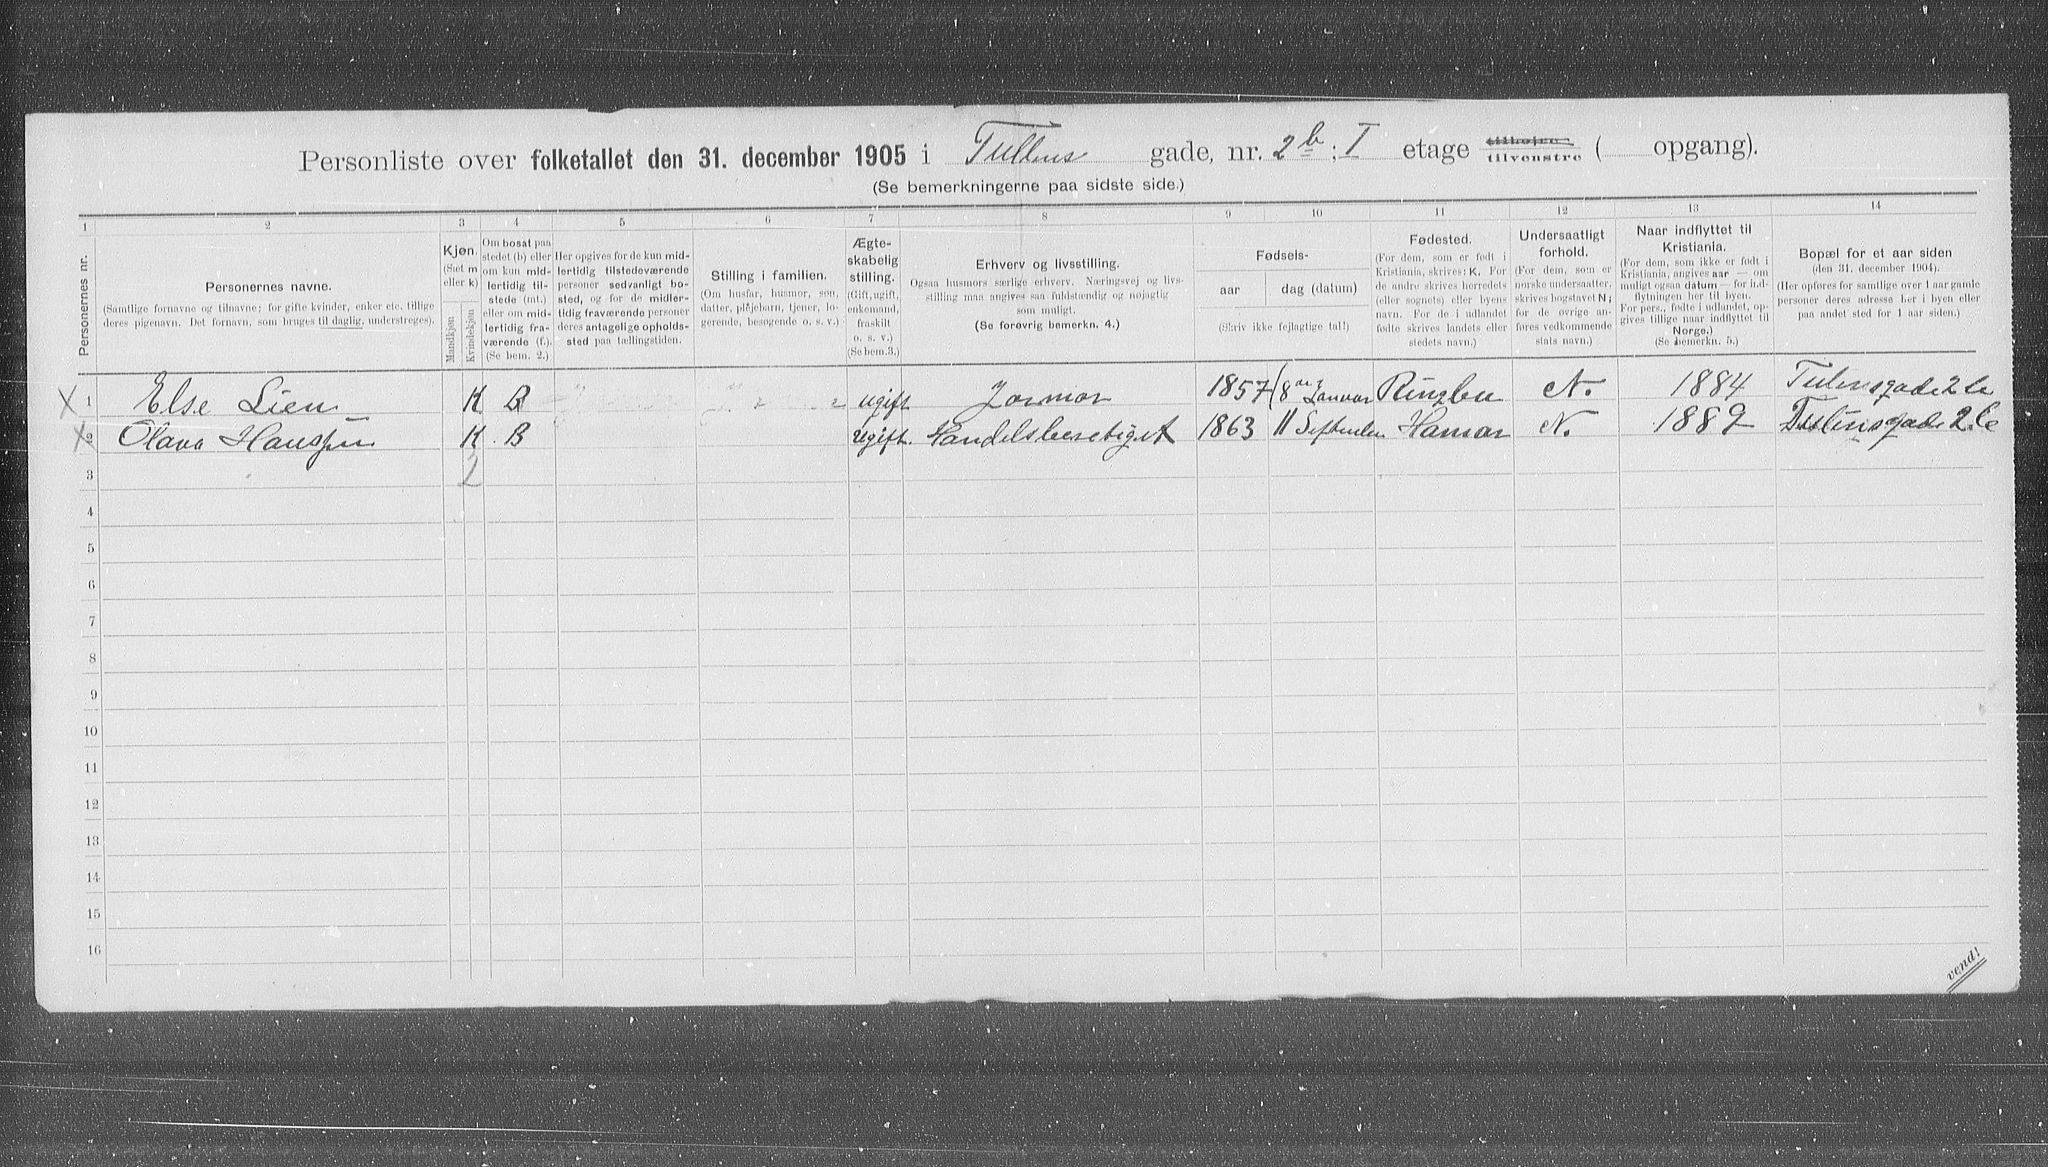 Personliste over folketallet den 31. december 1905 i Tullins gade, nr. 2b; I etage tilhøjre tilvenstre ( opgang).
(Se bemerkningerne paa sidste side.)
1 2 3 4 5 6 7 8 9 10 11 12 13 14
Personernes nr.
Personernes navne.
(Samtlige fornavne og tilnavne; for gifte kvinder, enker etc. tillige deres pigenavn. Det fornavn, som bruges til daglig, understreges).
Kjøn.
(Sæt m eller k)
Mandkjøn
Kvindekjøn
Om bosat paa stedet (b) eller om kun midlertidig tilstede (mt.) eller om midlertidig fraværende (f.). (Se bem. 2.)
Her opgives for de kun midlertidig tilstedeværende personer sedvanligt bosted, og for de midlertidig fraværende personer deres antagelige opholdssted paa tællingstiden.
Stilling i familien.
(Om husfar, husmor, søn, datter, plejebarn, tjener, logerende, besøgende o. s. v.)
Ægteskabelig stilling.
(Gift, ugift, enkemand, fraskilt o. s. v.)
(Se bem.3.)
Erhverv og livsstilling.
Ogsaa husmors særlige erhverv. Næringsvej og livsstilling maa angives saa fuldstændig og nøjagtig som muligt.
(Se forøvrig bemerkn. 4.)
Fødsels-
aar dag (datum)
(Skriv ikke fejlagtige tal!)
Fødested.
(For dem, som er født i Kristiania, skrives: K. For de andre skrives herredets (eller sognets) eller byens navn. For de i udlandet fødte skrives landets eller stedets navn.)
Undersaatligt forhold.
(For dem, som er norske undersaatter, skrives bogstavet N; for de øvrige angives vedkommende stats navn.)
Naar indflyttet til Kristiania.
(For dem, som ikke er født i Kristiania, angives aar — om muligt ogsaa datum — for indflytningen her til byen. For pers., fødte i udlandet, opgives tillige naar indflyttet til Norge.)
(Se bemerkn. 5.)
Bopæl for et aar siden
(den 31. december 1904).
(Her opføres for samtlige over 1 aar gamle personer deres adresse her i byen eller paa andet sted for 1 aar siden.)
X 1 Else Lien K B ugift 1857 Januar Ringbu N. 1884 Tulinsgade 2b
X 2 Olava Hanssen K. B ugift. Handelsberetiget 1863 11 September Hamar N. 1889 Tulinsgade 2b
3 2
4
5
6
7
8
9
10
11
12
13
14
15
16
vend!